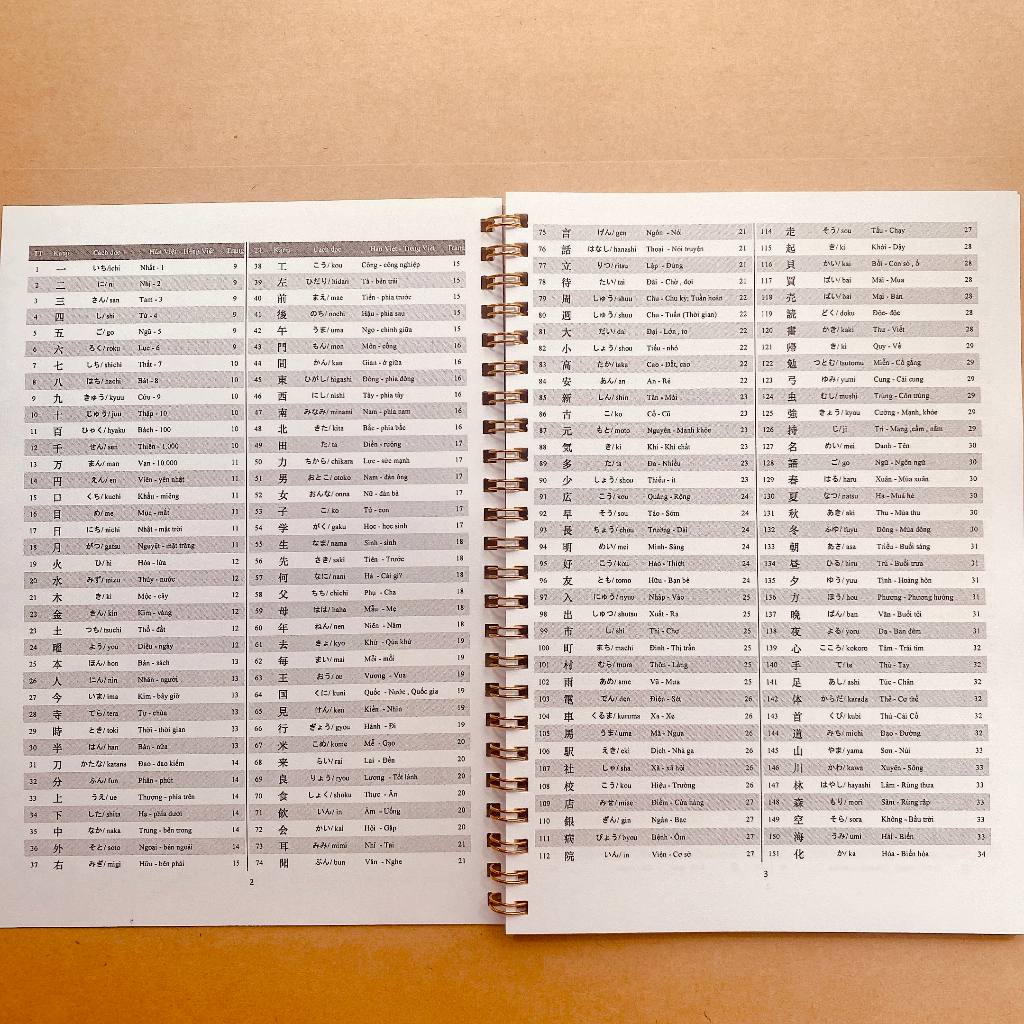 TT Kanji Cách đọc Hán Việt - Tiếng Việt Trang
1 一 いち/ichi Nhất - 1 9
2 二 に/ ni Nhị - 2 9
3 三 さん/ san Tam - 3 9
4 四 し/ shi Tứ - 4 9
5 五 ご/ go Ngũ - 5 9
6 六 ろく/ roku Lục - 6 9
7 七 しち/ shichi Thất - 7 10
8 八 はち/ hachi Bát - 8 10
9 九 きゅう/ kyuu Cửu - 9 10
10 十 じゅう/ juu Thập - 10 10
11 百 ひゃく/ hyaku Bách - 100 10
12 千 せん/ sen Thiên - 1.000 10
13 万 まん/ man Vạn - 10.000 11
14 円 えん/ en Viên - yên nhật 11
15 口 くち/ kuchi Khẩu - miệng 11
16 目 め/ me Mục - mắt 11
17 日 にち/ nichi Nhật - mặt trời 11
18 月 がつ/ gatsu Nguyệt - mặt trăng 11
19 火 ひ/ hi Hỏa - lửa 12
20 水 みず/ mizu Thủy - nước 12
21 木 き/ ki Mộc - cây 12
22 金 きん/ kin Kim - vàng 12
23 土 つち/ tsuchi Thổ - đất 12
24 曜 よう/ you Diệu - ngày 12
25 本 ほん/ hon Bản - sách 13
26 人 にん/ nin Nhân - người 13
27 今 いま/ ima Kim - bây giờ 13
28 寺 てら/ tera Tự - chùa 13
29 時 とき/ toki Thời - thời gian 13
30 半 はん/ han Bán - nửa 13
31 刀 かたな/ katana Đao - đao kiếm 14
32 分 ふん/ fun Phân - phút 14
33 上 うえ/ ue Thượng - phía trên 14
34 下 した/ shita Hạ - phía dưới 14
35 中 なか/ naka Trung - bên trong 14
36 外 そと/ soto Ngoại - bên ngoài 14
37 右 みぎ/ migi Hữu - bên phải 15
TT Kanji Cách đọc Hán Việt - Tiếng Việt Trang
38 工 こう/ kou Công - công nghiệp 15
39 左 ひだり/ hidari Tả - bên trái 15
40 前 まえ/ mae Tiền - phía trước 15
41 後 のち/ nochi Hậu - phía sau 15
42 午 うま/ uma Ngọ - chính giữa 15
43 門 もん/ mon Môn - cổng 16
44 間 かん/ kan Gian - ở giữa 16
45 東 ひがし/ higashi Đông - phía đông 16
46 西 にし/ nishi Tây - phía tây 16
47 南 みなみ/ minami Nam - phía nam 16
48 北 きた/ kita Bắc - phía bắc 16
49 田 た/ ta Điền - ruộng 17
50 力 ちから/ chikara Lực - sức mạnh 17
51 男 おとこ/ otoko Nam - đàn ông 17
52 女 おんな/ onna Nữ - đàn bà 17
53 子 こ/ ko Tử - con 17
54 学 がく/ gaku Học - học sinh 17
55 生 なま/ nama Sinh - sinh 18
56 先 さき/ saki Tiên - Trước 18
57 何 なに/ nani Hà - Cái gì? 18
58 父 ちち/ chichi Phụ - Cha 18
59 母 はは/ haha Mẫu - Mẹ 18
60 年 ねん/ nen Niên - Năm 18
61 去 きょ/ kyo Khứ - Qúa khứ 19
62 毎 まい/ mai Mỗi - mỗi 19
63 王 おう/ ou Vương - Vua 19
64 国 くに/ kuni Quốc - Nước , Quốc gia 19
65 見 けん/ ken Kiến - Nhìn 19
66 行 ぎょう/ gyou Hành - Đi 19
67 米 こめ/ kome Mễ - Gạo 20
68 来 らい/ rai Lai - Đến 20
69 良 りょう/ ryou Lương - Tốt lành 20
70 食 しょく/ shoku Thực - Ăn 20
71 飲 いん/ in Ẩm - Uống 20
72 会 かい/ kai Hội - Gặp 20
73 耳 みみ/ mimi Nhĩ - Tai 21
74 聞 ぶん/ bun Văn - Nghe 21
2
75 言 げん/ gen Ngôn - Nói 21
76 話 はなし/ hanashi Thoại - Nói truyện 21
77 立 りつ/ ritsu Lập - Đứng 21
78 待 たい/ tai Đãi - Chờ, đợi 21
79 周 しゅう/ shuu Chu - Chu kỳ; Tuần hoàn 22
80 週 しゅう/ shuu Chu - Tuần (Thời gian) 22
81 大 だい/ dai Đại - Lớn , to 22
82 小 しょう/ shou Tiểu - nhỏ 22
83 高 たか/ taka Cao - Đắt, cao 22
84 安 あん/ an An - Rẻ 22
85 新 しん/ shin Tân - Mới 23
86 古 こ/ ko Cổ - Cũ 23
87 元 もと/ moto Nguyên - Mạnh khỏe 23
88 気 き/ ki Khí - Khí chất 23
89 多 た/ ta Đa - Nhiều 23
90 少 しょう/ shou Thiểu - ít 23
91 広 こう/ kou Quảng - Rộng 24
92 早 そう/ sou Tảo - Sớm 24
93 長 ちょう/ chou Trường - Dài 24
94 明 めい/ mei Minh - Sáng 24
95 好 こう/ kou Hảo - Thích 24
96 友 とも/ tomo Hữu - Bạn bè 24
97 入 にゅう/ nyuu Nhập - Vào 25
98 出 しゅつ/ shutsu Xuất - Ra 25
99 市 し/ shi Thị - Chợ 25
100 町 まち/ machi Đinh - Thị trấn 25
101 村 むら/ mura Thôn - Làng 25
102 雨 あめ/ ame Vũ - Mưa 25
103 電 でん/ den Điện - Sét 26
104 車 くるま/ kuruma Xa - Xe 26
105 馬 うま/ uma Mã - Ngựa 26
106 駅 えき/ eki Dịch - Nhà ga 26
107 社 しゃ/ sha Xã - xã hội 26
108 校 こう/ kou Hiệu - Trường 26
109 店 みせ/ mise Điếm - Cửa hàng 27
110 銀 ぎん/ gin Ngân - Bạc 27
111 病 びょう/ byou Bệnh - Ốm 27
112 院 いん/ in Viện - Cơ sở 27
114 走 そう/ sou Tẩu - Chạy 27
115 起 き/ ki Khởi - Dậy 28
116 貝 かい/ kai Bối - Con sò , ố 28
117 買 ばい/ bai Mãi - Mua 28
118 売 ばい/ bai Mại - Bán 28
119 読 どく/ doku Độc- độc 28
120 書 かき/ kaki Thư - Viết 28
121 帰 き/ ki Quy - Về 29
122 勉 つとむ/ tsutomu Miễn - Cố gắng 29
123 弓 ゆみ/ yumi Cung - Cái cung 29
124 虫 むし/ mushi Trùng - Côn trùng 29
125 強 きょう/ kyou Cường - Mạnh, khỏe 29
126 持 じ/ ji Trì - Mang ,cầm , nắm 29
127 名 めい/ mei Danh - Tên 30
128 語 ご/ go Ngữ - Ngôn ngữ 30
129 春 はる/ haru Xuân - Mùa xuân 30
130 夏 なつ/ natsu Hạ - Muà hè 30
131 秋 あき/ aki Thu - Mùa thu 30
132 冬 ふゆ/ fuyu Đông - Mùa đông 30
133 朝 あさ/ asa Triều - Buổi sáng 31
134 昼 ひる/ hiru Trú - Buổi trưa 31
135 夕 ゆう/ yuu Tịnh - Hoàng hôn 31
136 方 ほう/ hou Phương - Phương hướng 31
137 晩 ばん/ ban Vãn - Buổi tối 31
138 夜 よる/ yoru Dạ - Ban đêm 31
139 心 こころ/ kokoro Tâm - Trái tim 32
140 手 て/ te Thủ - Tay 32
141 足 あし/ ashi Túc - Chân 32
142 体 からだ/ karada Thể - Cơ thể 32
143 首 くび/ kubi Thủ - Cái Cổ 32
144 道 みち/ michi Đạo - Đường 32
145 山 やま/ yama Sơn - Núi 33
146 川 かわ/ kawa Xuyên - Sông 33
147 林 はやし/ hayashi Lâm - Rừng thưa 33
148 森 もり/ mori Sâm - Rừng rậm 33
149 空 そら/ sora Không - Bầu trời 33
150 海 うみ/ umi Hải - Biển 33
151 化 か/ ka Hóa - Biến hóa 34
3